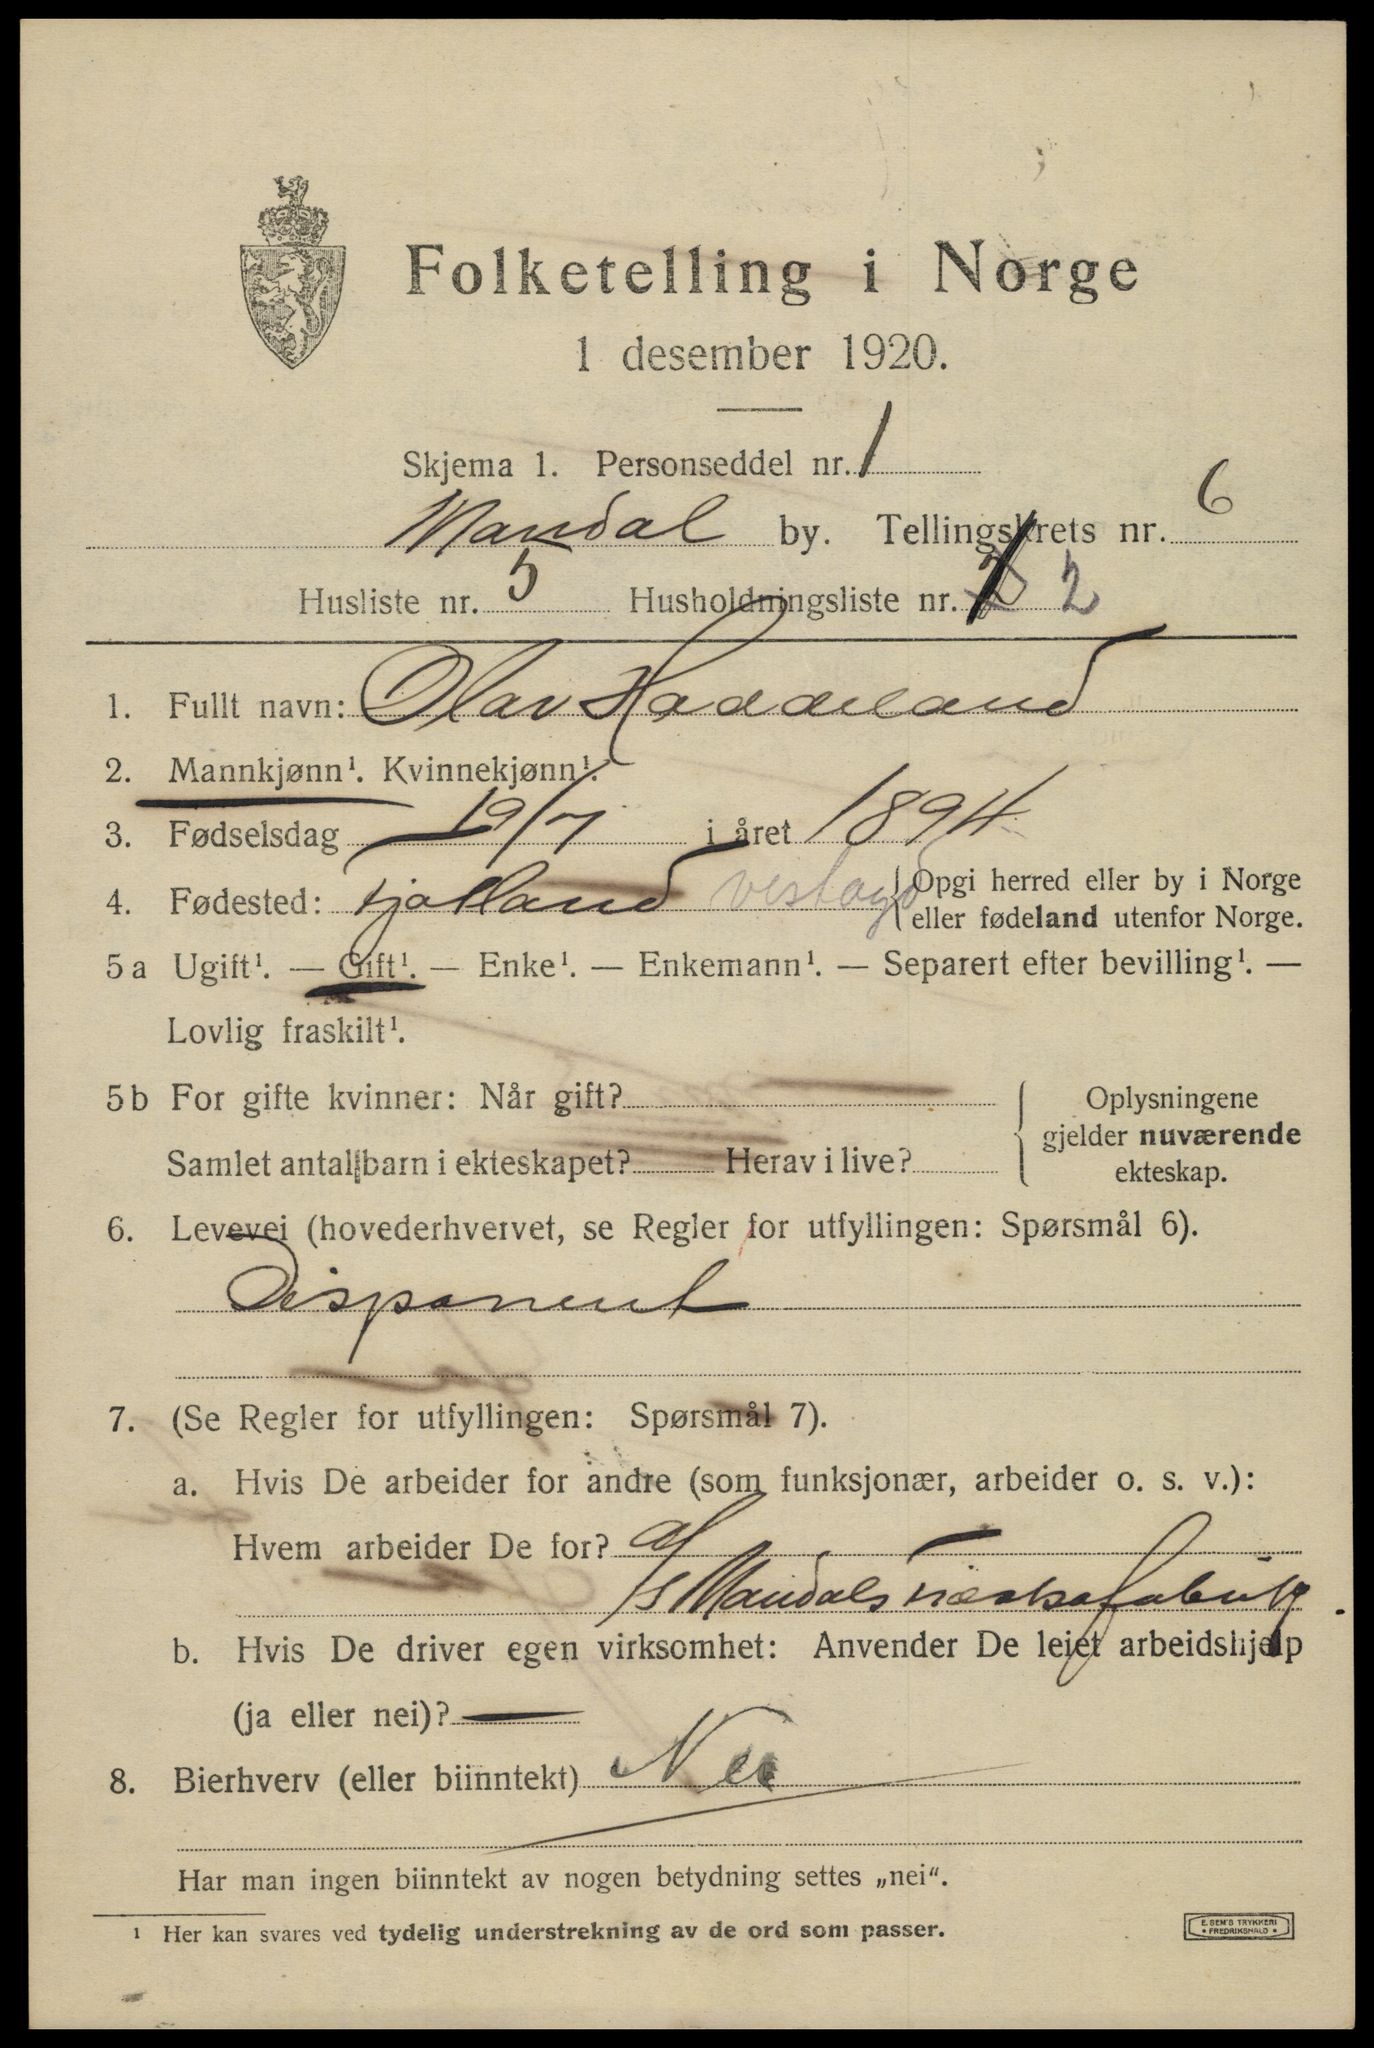 Folketelling i Norge
1 desember 1920.
Skjema 1. Personseddel nr. 1
Mandal by. Tellingskrets nr. 6
Husliste nr. 5 Husholdningsliste nr. 2
1. Fullt navn: Olav Haddeland
2. Mannkjønn¹. Kvinnekjønn¹.
3. Fødselsdag 19/7 i året 1894
4. Fødested: Fjotland vestagd { Opgi herred eller by i Norge
eller fødeland utenfor Norge.
5 a Ugift¹. — Gift¹. — Enke¹. — Enkemann¹. — Separert efter bevilling¹. —
Lovlig fraskilt¹.
5 b For gifte kvinner: Når gift?
Samlet antal barn i ekteskapet? Herav i live?
Oplysningene
gjelder nuværende
ekteskap.
6. Levevei (hovederhvervet, se Regler for utfyllingen: Spørsmål 6).
Disponent
7. (Se Regler for utfyllingen: Spørsmål 7).
a. Hvis De arbeider for andre (som funksjonær, arbeider o. s. v.):
Hvem arbeider De for? A/S
Mandals Træskofabrik.
b. Hvis De driver egen virksomhet: Anvender De leiet arbeidshjelp
(ja eller nei)? —
8. Bierhverv (eller biinntekt) Nei
Har man ingen biinntekt av nogen betydning settes „nei“.
¹ Her kan svares ved tydelig understrekning av de ord som passer.
E. SEM'S TRYKKERI
• FREDRIKSHALD •